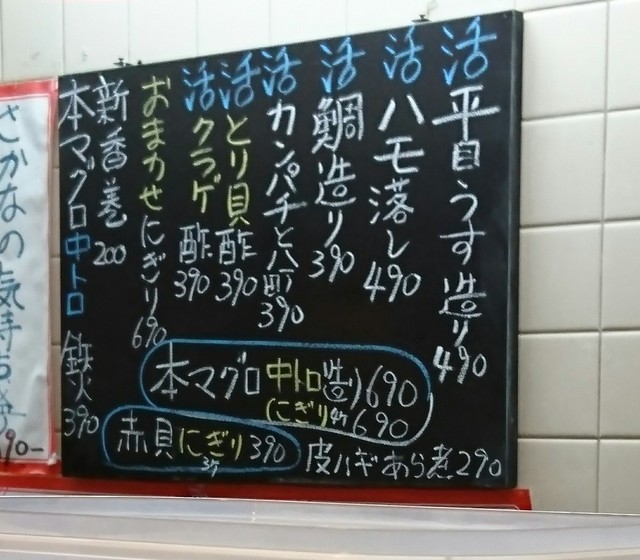 活平目うす造り490
活ハモ落し490
活鯛造り390
活カンパチと八町390
活とり貝酢390
活クラゲ酢390
おまかせにぎり690
新香巻200
本マグロ中トロ鉄火390
本マグロ中トロ造り690
(にぎり4ケ690
赤貝にぎり3ケ390
皮ハギあら煮290
さかなの気持ち
90-